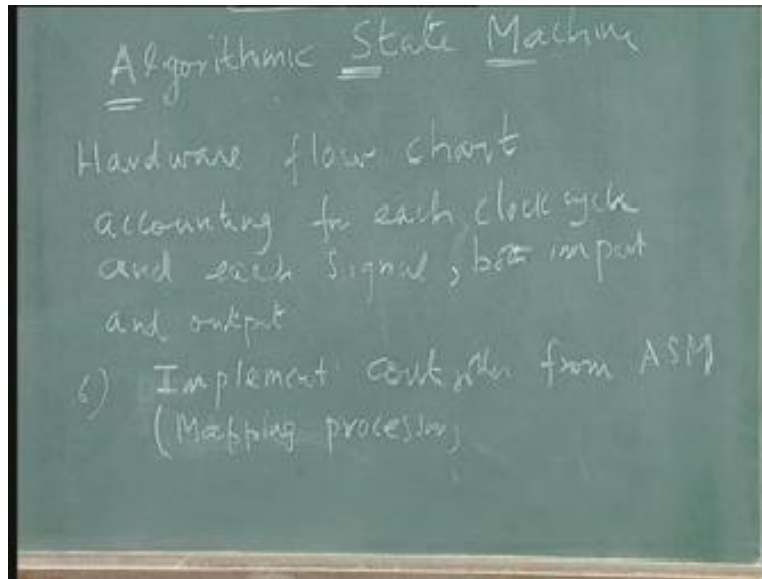 Algorithmic State Machine
Hardware flow chart
accounting for each clock cycle
and each signal, both input
and output
6) Implement controller from ASM
(Mapping processing